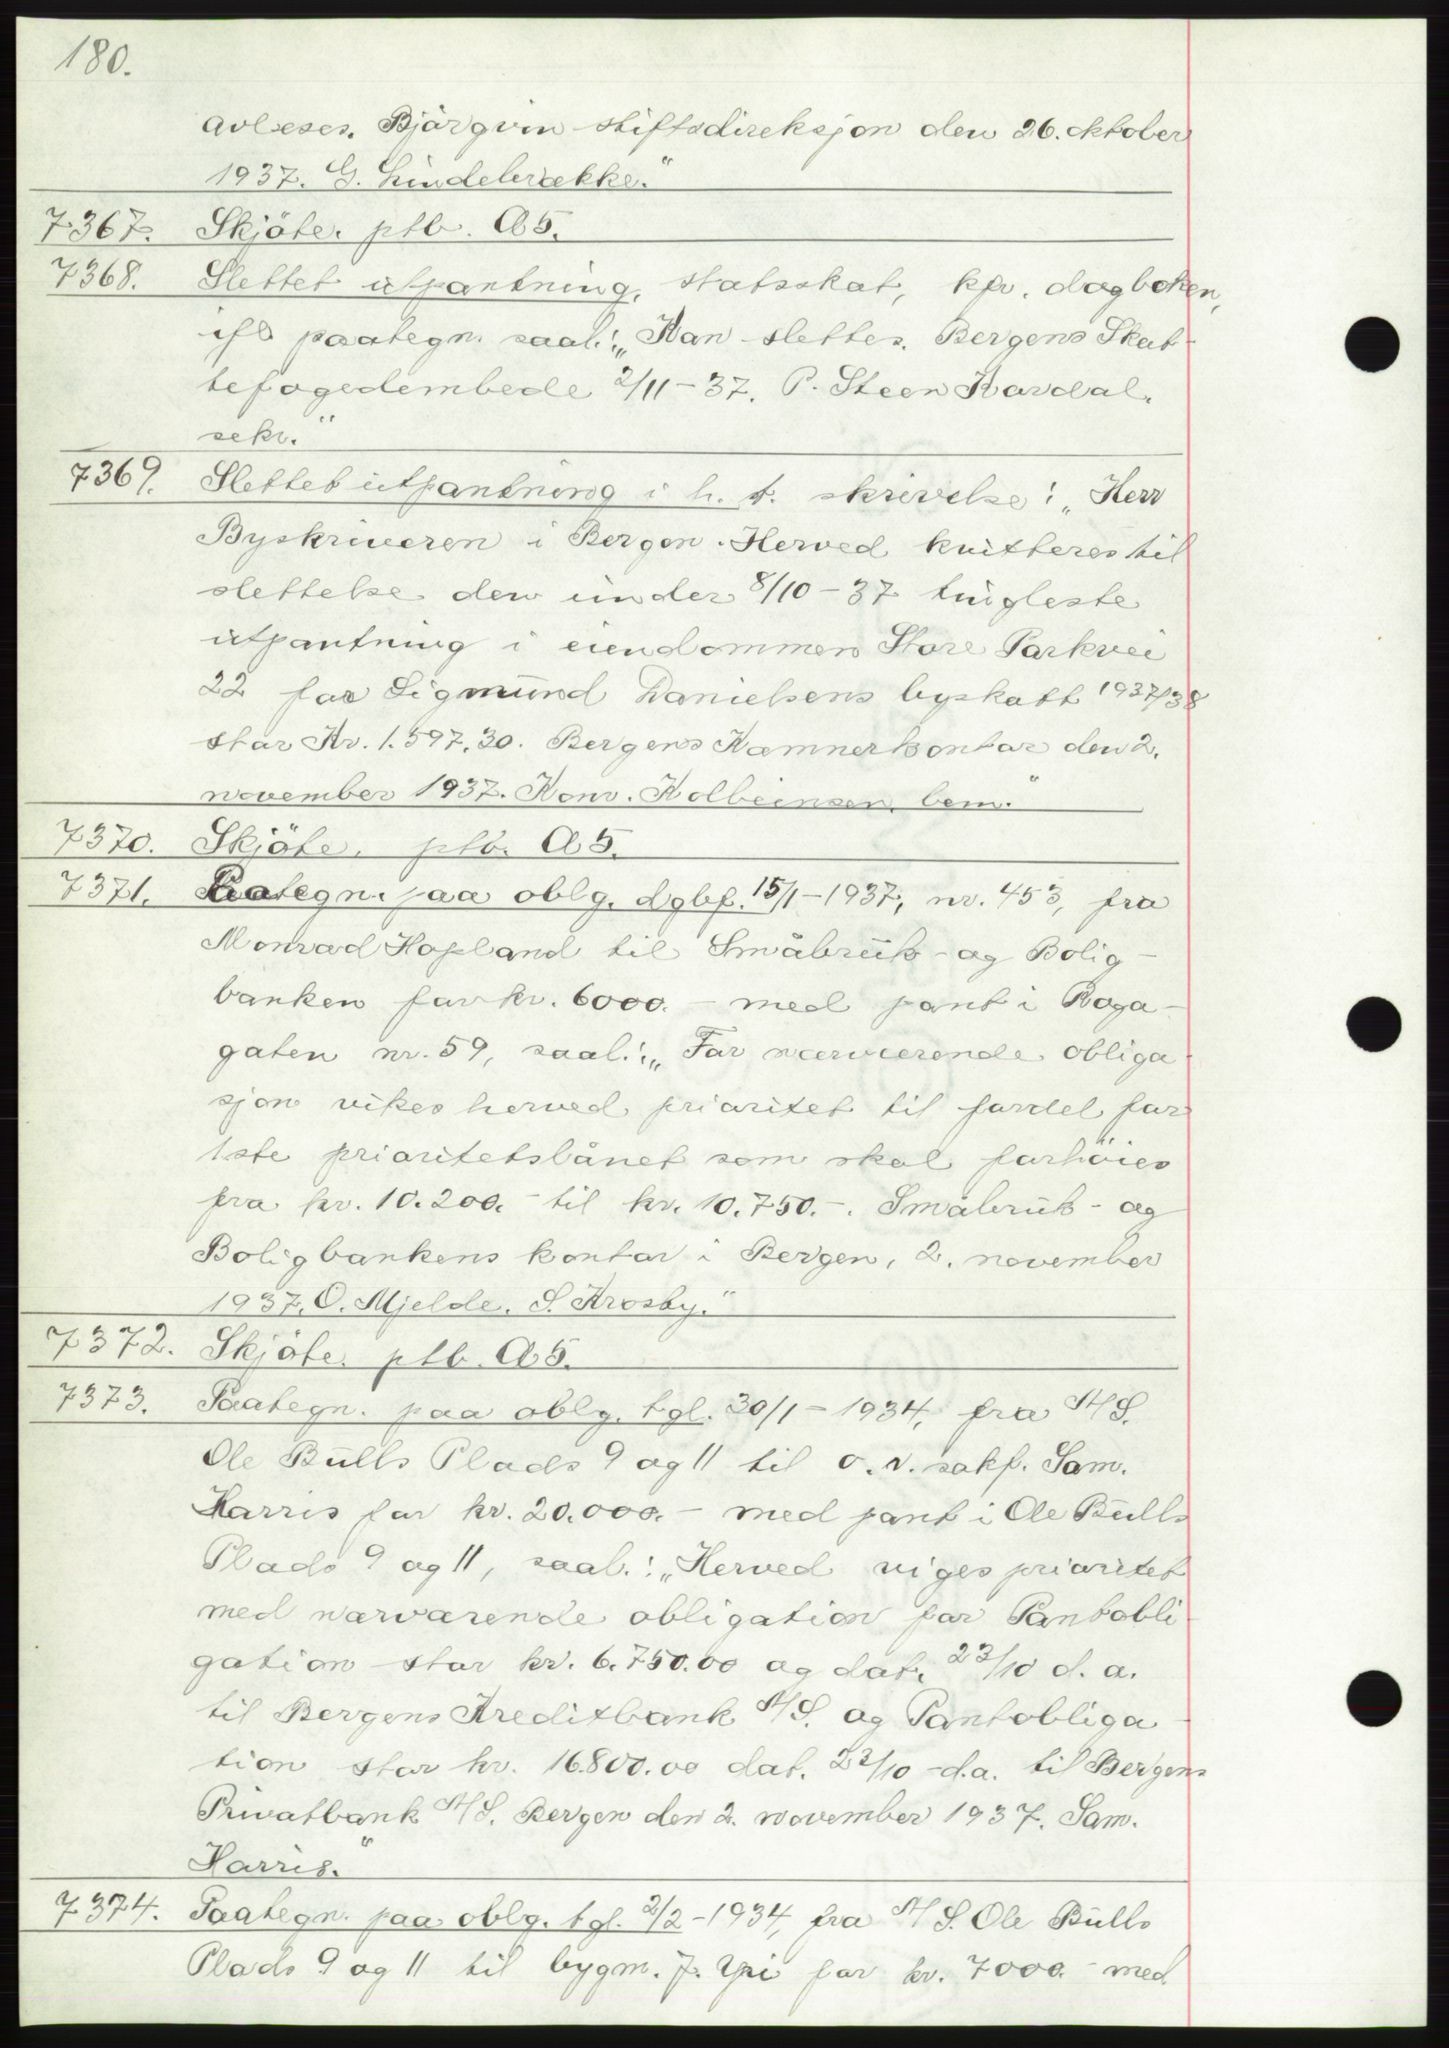 180.
avløses. Bjørgvin stiftsdireksjon den 26. oktober
1937. G. Lindebrække."
7367. Skjöte. ptb. A5.
7368. Slettet utpantning, statsskat, kfr. dagboken,
ifl paategn. saal.: „Kan slettes. Bergens Skat-
tefogedembede 2/11-37. P. Steen Hardal.
sekr."
7369. Slettet utpantning i h. t. skrivelse: „Herr
Byskriveren i Bergen. Herved kvitteres til
slettelse den under 8/10-37 tingleste
utpantning i eiendommen Store Parkvei
22 for Sigmund Danielsens byskatt 1937/38
stor Kr. 1.597,30. Bergens Kæmnerkontor den 2.
november 1937. Konr. Kolbeinsen bem."
7370. Skjöte. ptb. A5.
7371. Paategn. paa oblg. dgbf. 15/1-1937, nr. 453, fra
Monrad Hopland til Småbruk- og Bolig-
banken for kr. 6000.- med pant i Boga-
gaten nr. 59, saal.: „For nærværende obliga-
sjon vikes herved prioritet til fordel for
1ste prioritetslånet som skal forhöies
fra kr. 10.200.- til kr. 10.750.-. Småbruk- og
Boligbankens kontor i Bergen, 2. november
1937. O. Mjelde. S. Krosby."
7372. Skjöte. ptb. A5.
7373. Paategn. paa oblg. tgl. 30/1-1934, fra A/S.
Ole Bulls Plads 9 og 11 til o.r. sakf. Sam.
Harris for kr. 20.000.- med pant i Ole Bulls
Plads 9 og 11, saal.: „Herved viges prioritet
med nærværende obligation for Pantobli-
gation stor kr. 6.750.00 og dat. 23/10 d. a.
til Bergens Kreditbank A/S. og Pantobliga-
tion stor kr. 16800.00 dat. 23/10 - d.a. til Bergens
Privatbank A/S. Bergen den 2. november 1937. Sam.
Harris."
7374. Paategn. paa oblg. tgl. 2/2-1934, fra A/S. Ole Bulls
Plads 9 og 11 til bygm. J. Yri for kr. 7000.- med